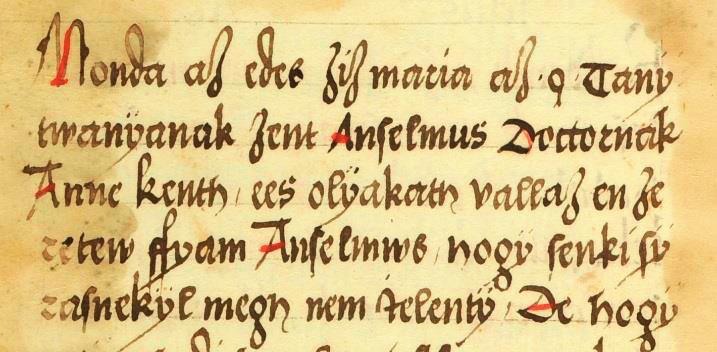 Monda aʒ edes ʒiʒ maria aʒ · ǫ · Tany
twanÿanak ʒent Anselmus Doctornak
Anne kenth, ees olÿakath vallaʒ en ʒe
retew ffyam Anselmws, hogy senki sy
rasnekÿl megh nem ielentÿ, De hogy